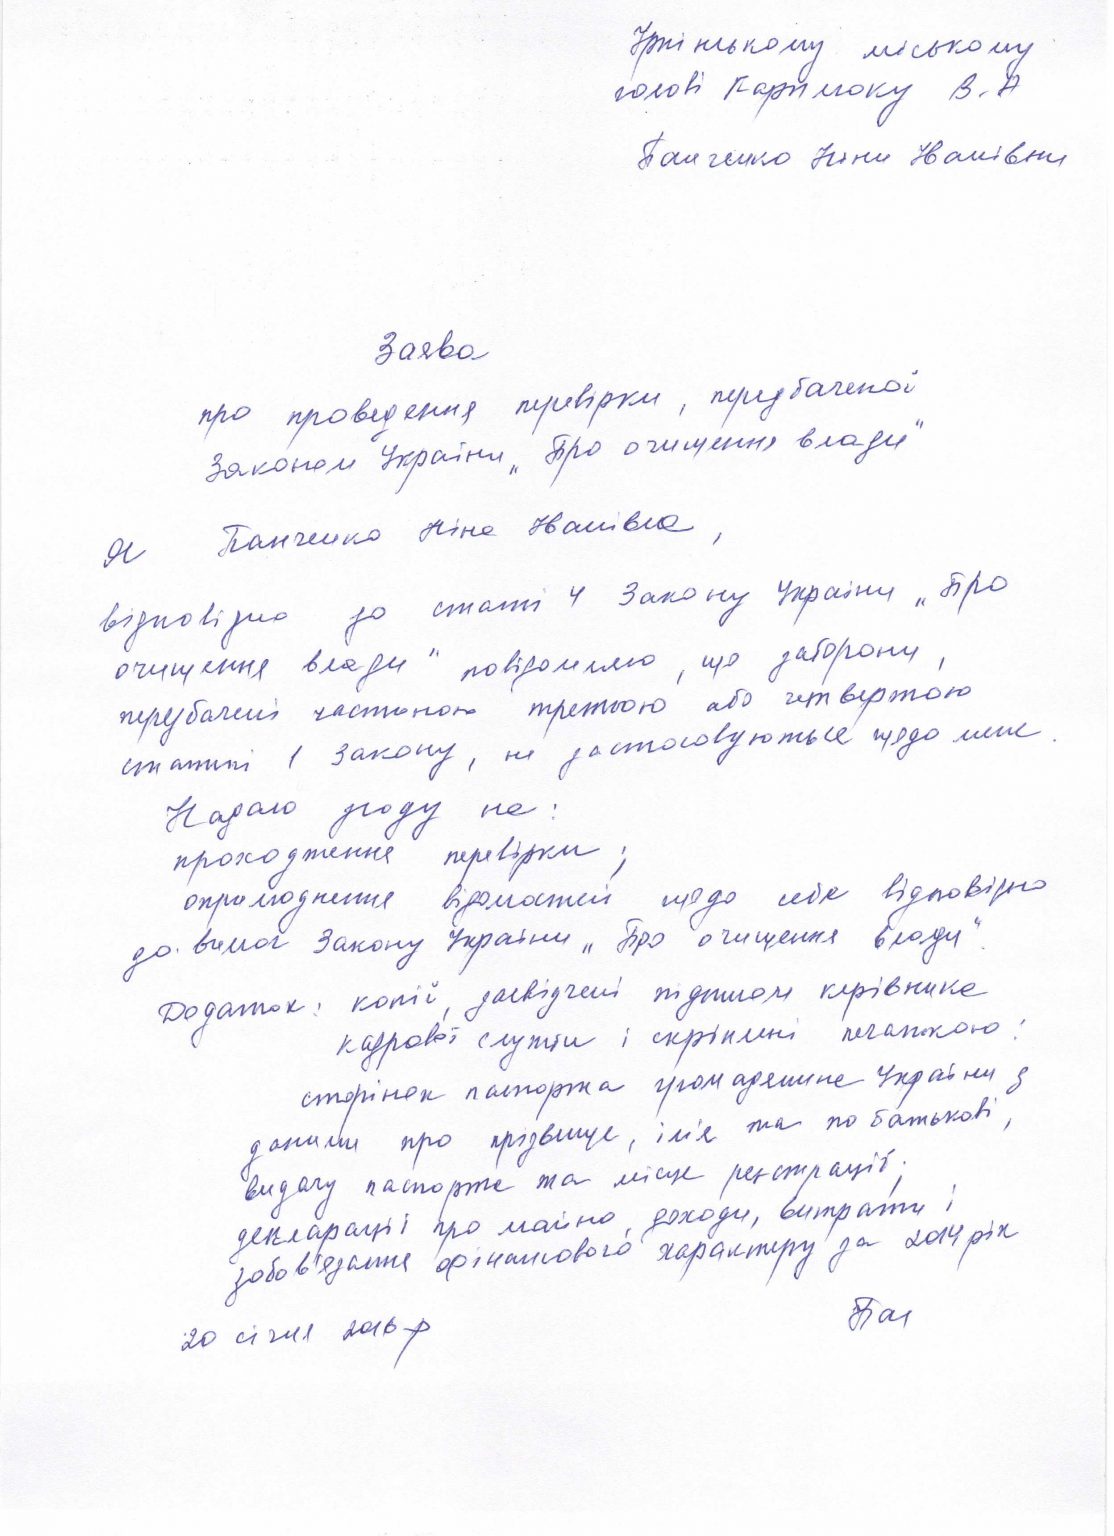 Ірпінському міському
голові Карплюку В. А
Панченко Ніни Іванівни
Заява
про проведення перевірки, передбаченої
Законом України „Про очищення влади"
Я Панченко Ніна Іванівна,
відповідно до статі 4 Закону України „Про
очищення влади" повідомляю, що заборони,
передбачені частиною третьою або четвертою
статті 1 Закону, не застосовуються щодо мене.
Надаю згоду на:
проходження перевірки;
оприлюднення відомостей щодо себе відповідно
до вимог Закону України „Про очищення влади".
Додаток: копії, засвідчені підписом керівника
кадрової служби і скріплені печаткою:
сторінок паспорта громадянина України з
даними про прізвище, ім'я та по батькові,
видачу паспорта та місце реєстрації;
декларації про майно, доходи, витрати і
зобов'язання фінансового характеру за 2014 рік
20 січня 2016 р Пан